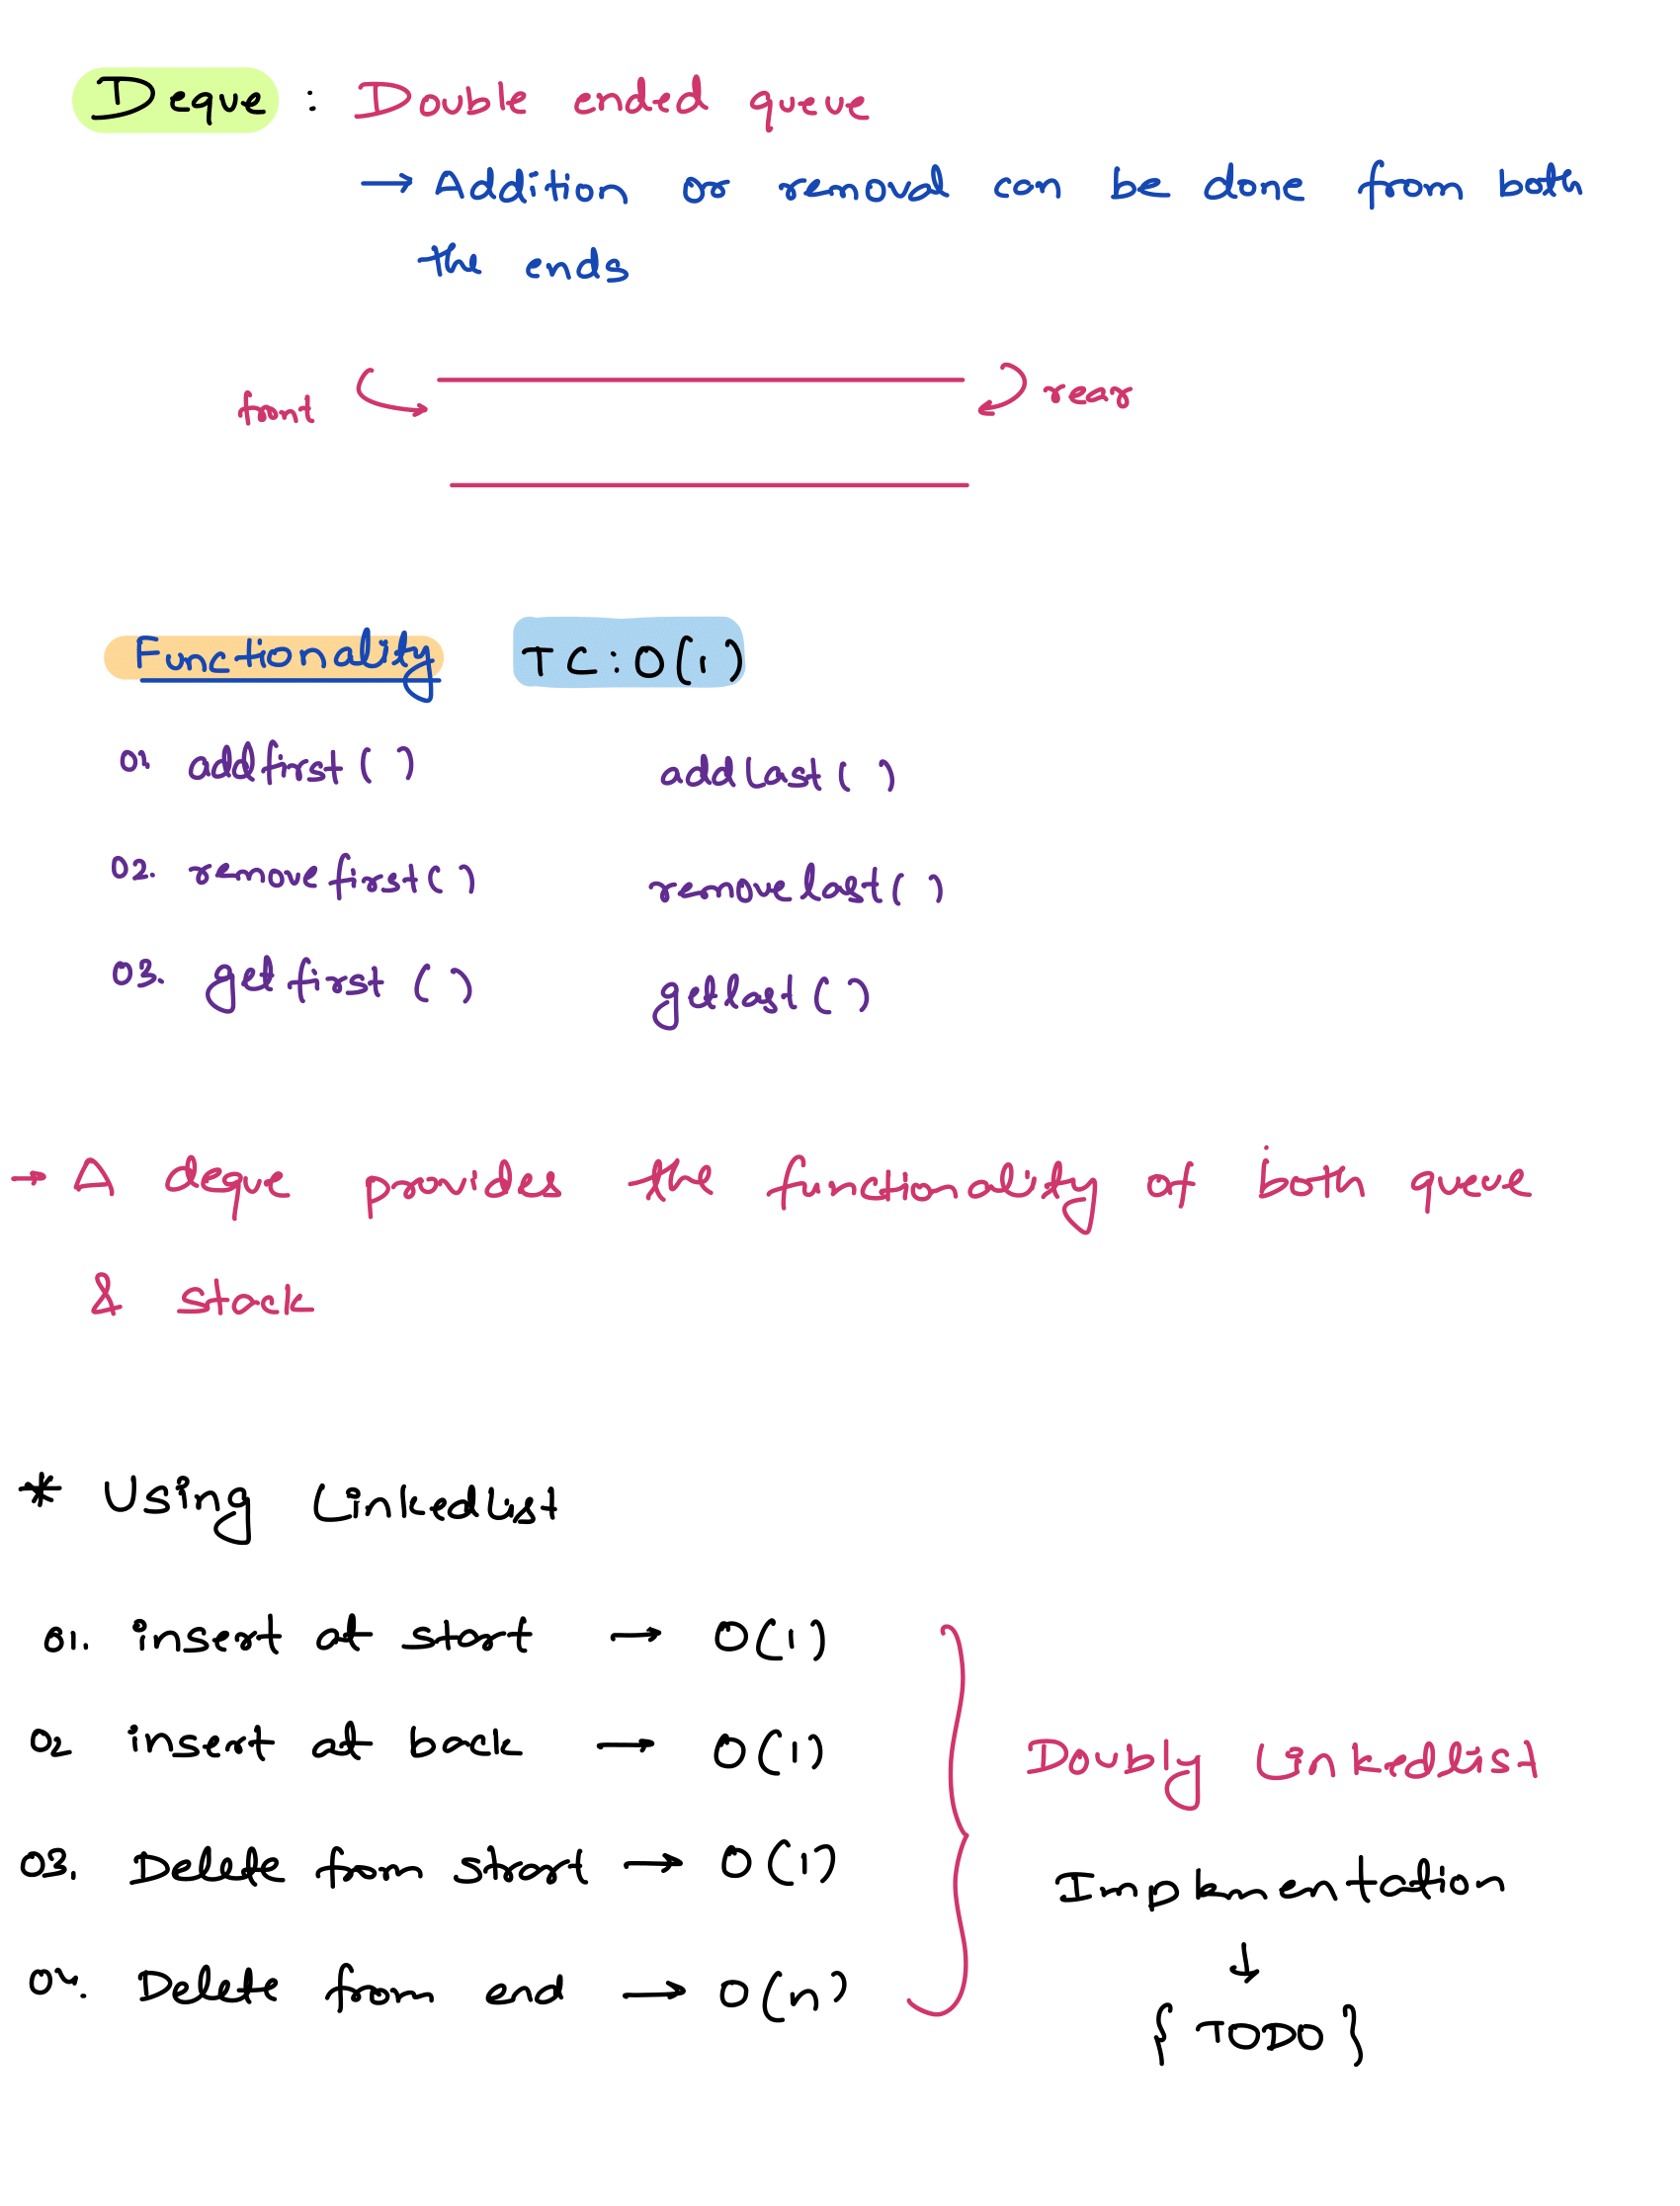 Deque : Double ended queue
→ Addition or removal can be done from both
the ends
front rear
Functionality TC : O(1)
01. addfirst( ) addLast( )
02. removefirst( ) removelast( )
03. getfirst ( ) getlast ( )
→ A deque provides the functionality of both queue
& stack
* Using Linkedlist
01. insert at start → O(1)
02 insert at back → O(1)
03. Delete from start → O(1)
04. Delete from end → O(n)
Doubly Linkedlist
Implementation
↓
{ TODO }